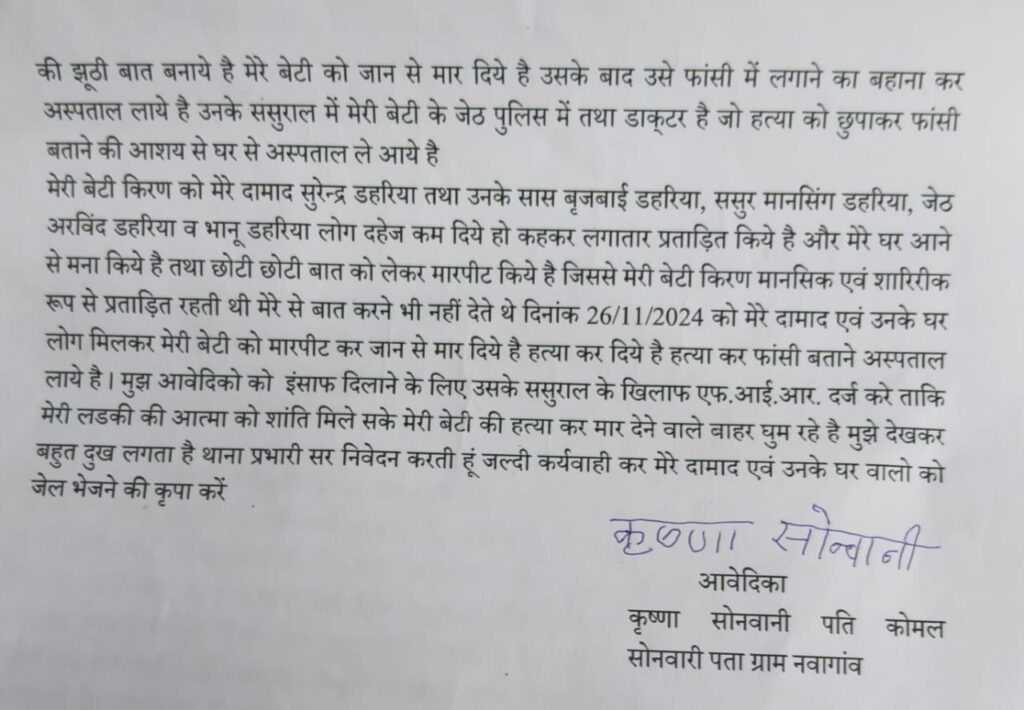 की झूठी बात बनाये है मेरे बेटी को जान से मार दिये है उसके बाद उसे फांसी में लगाने का बहाना कर
अस्पताल लाये है उनके संसुराल में मेरी बेटी के जेठ पुलिस में तथा डाक्टर है जो हत्या को छुपाकर फांसी
बताने की आशय से घर से अस्पताल ले आये है
मेरी बेटी किरण को मेरे दामाद सुरेन्द्र डहरिया तथा उनके सास बृजबाई डहरिया, ससुर मानसिंग डहरिया, जेठ
अरविंद डहरिया व भानू डहरिया लोग दहेज कम दिये हो कहकर लगातार प्रताड़ित किये है और मेरे घर आने
से मना किये है तथा छोटी छोटी बात को लेकर मारपीट किये है जिससे मेरी बेटी किरण मानसिक एवं शारिरीक
रूप से प्रताड़ित रहती थी मेरे से बात करने भी नहीं देते थे दिनांक 26/11/2024 को मेरे दामाद एवं उनके घर
लोग मिलकर मेरी बेटी को मारपीट कर जान से मार दिये है हत्या कर दिये है हत्या कर फांसी बताने अस्पताल
लाये है। मुझ आवेदिको को इंसाफ दिलाने के लिए उसके ससुराल के खिलाफ एफ.आई.आर. दर्ज करे ताकि
मेरी लडकी की आत्मा को शांति मिले सके मेरी बेटी की हत्या कर मार देने वाले बाहर घुम रहे है मुझे देखकर
बहुत दुख लगता है थाना प्रभारी सर निवेदन करती हूं जल्दी कर्यवाही कर मेरे दामाद एवं उनके घर वालो को
जेल भेजने की कृपा करें
कृष्णा सोनवानी
आवेदिका
कृष्णा सोनवानी पति कोमल
सोनवारी पता ग्राम नवागांव